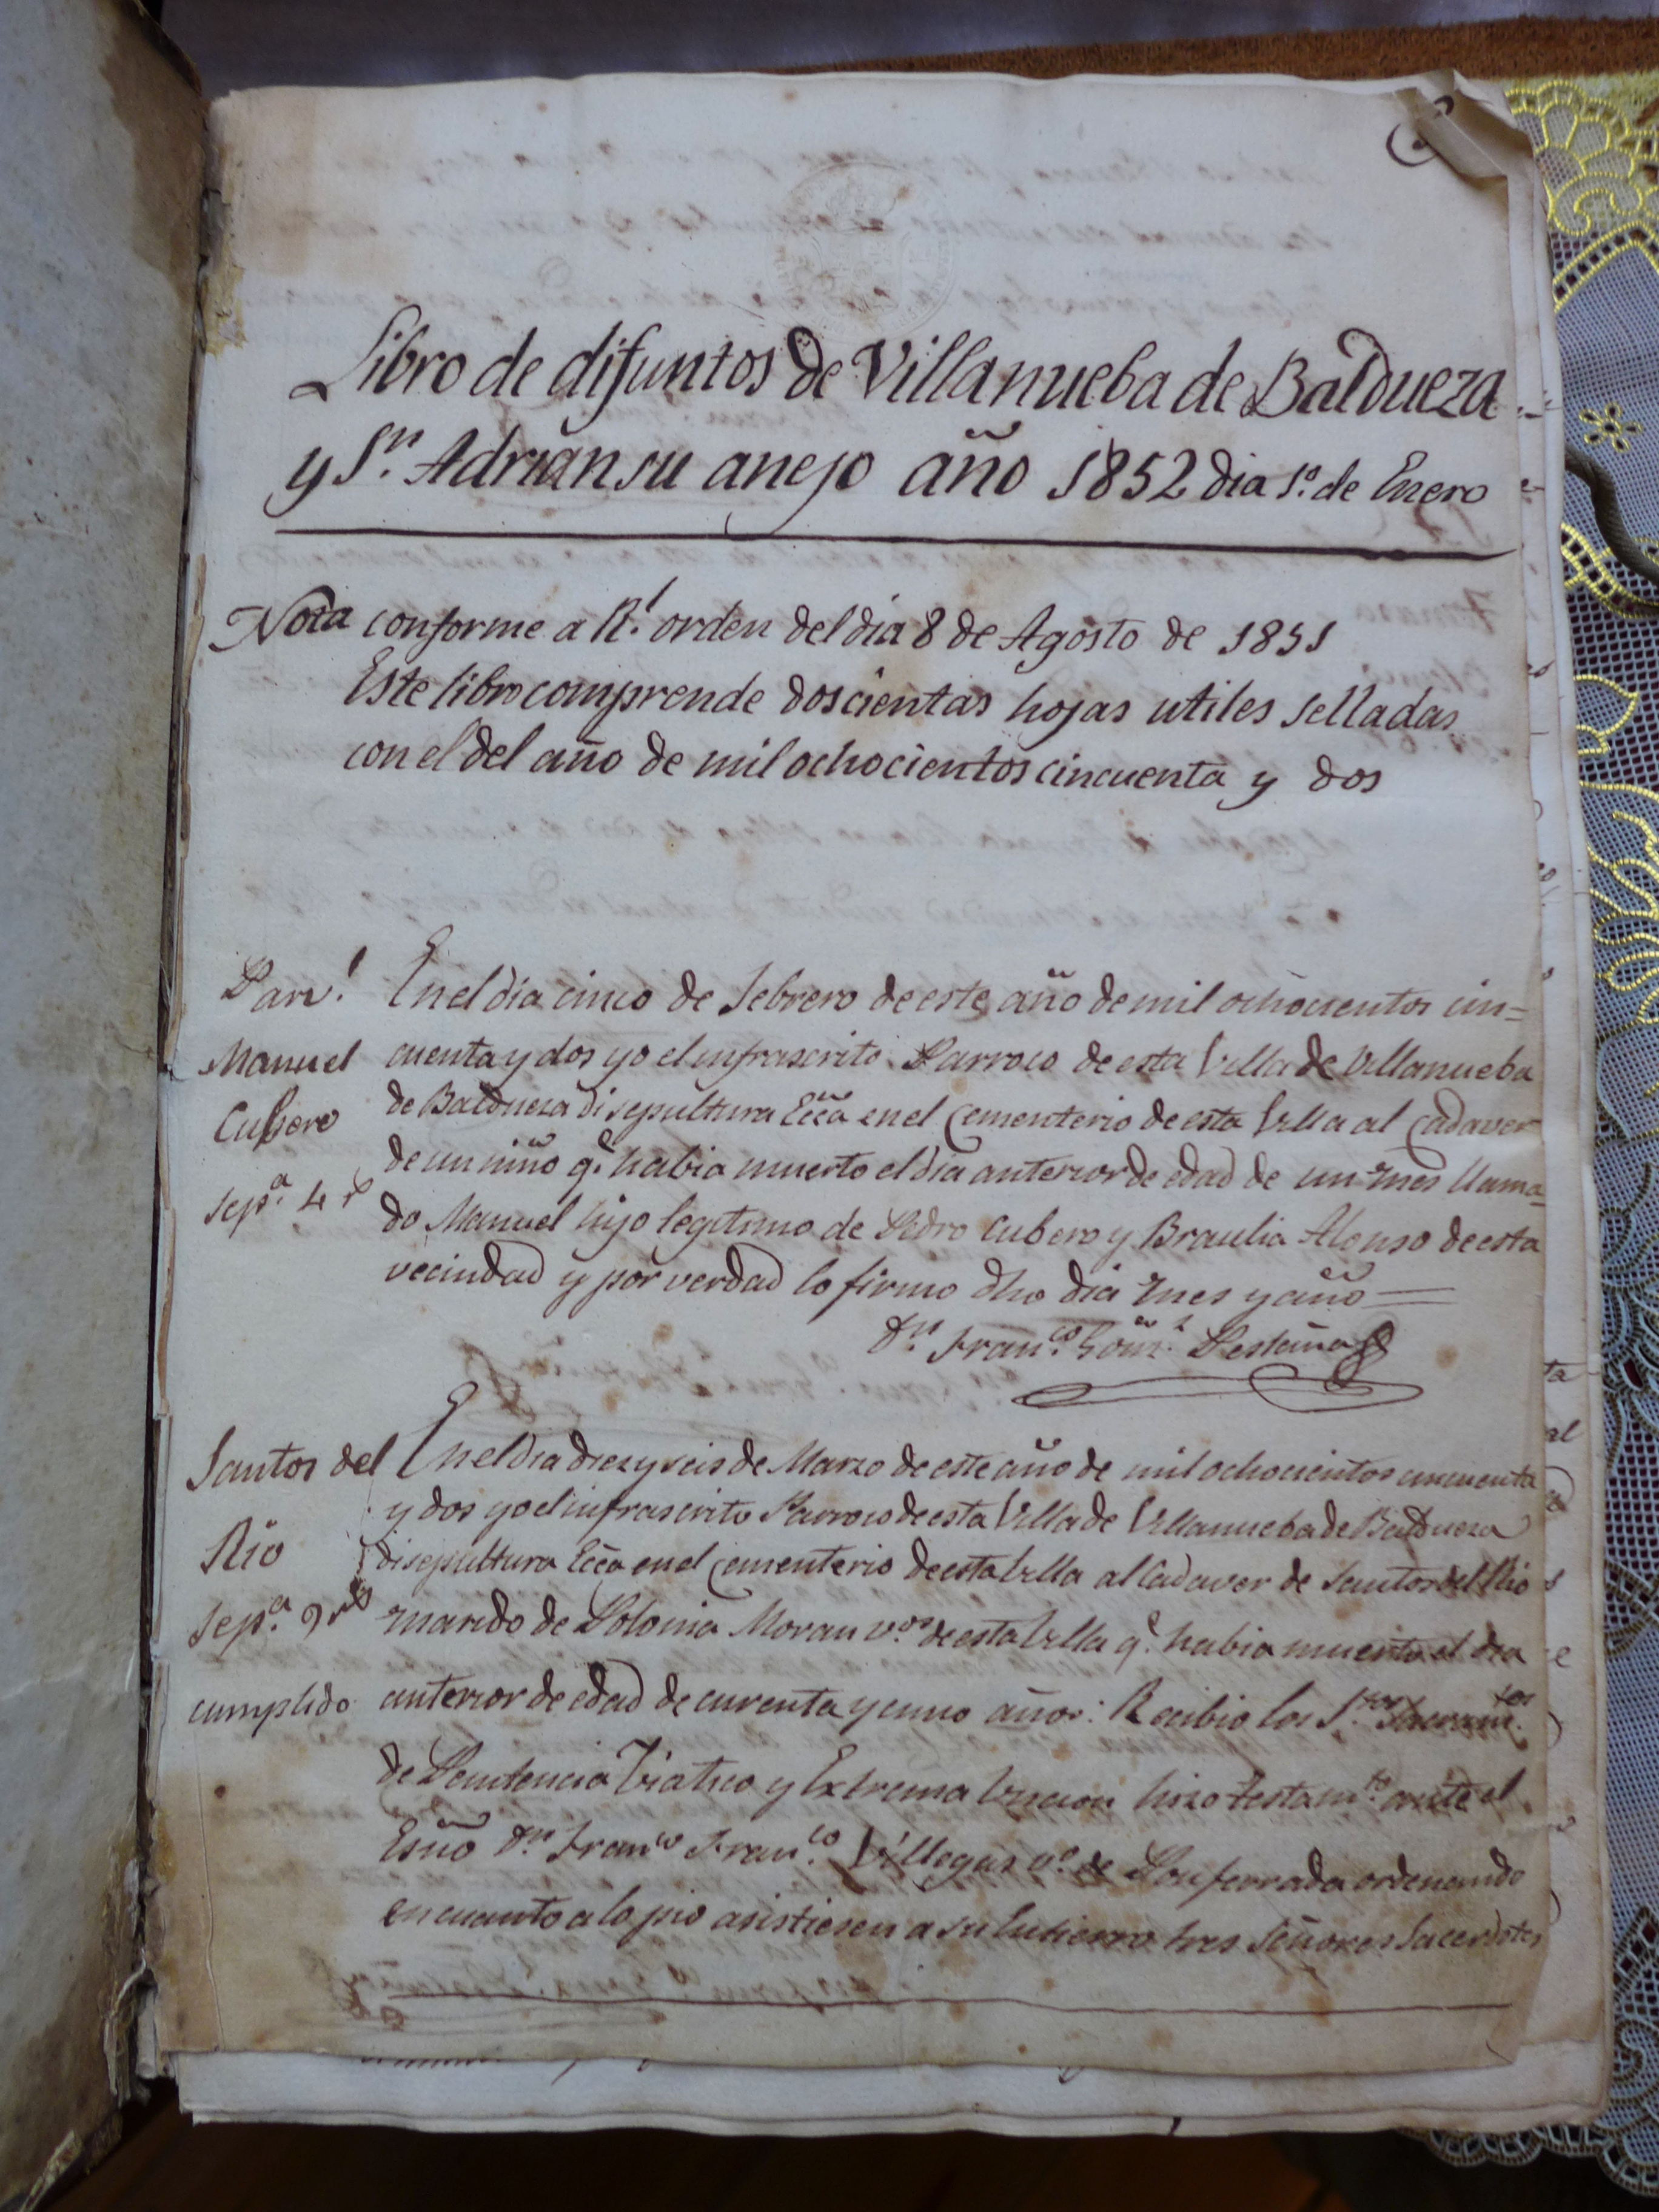 Libro de difuntos de Villanueba de Baldueza
y Sn. Adrian su anejo año 1852 dia 1º. de Enero
Nota conforme a Rl. orden del dia 8 de Agosto de 1851
Este libro comprende doscientas hojas utiles selladas
con el del año de mil ochocientos cincuenta y dos
Parvl.
Manuel
Cubero
Sepa. 4 r
En el dia cinco de Febrero de este año de mil ochocientos cin=
cuenta y dos yo el infrascrito Parroco de esta Villa de Villanueba
de Baldueza di sepultura Ecca en el Cementerio de esta Villa al Cadaver
de un niño qe. habia muerto el dia anterior de edad de un mes llama=
do Manuel hijo legitimo de Pedro Cubero y Braulia Alonso de esta
vecindad y por verdad lo firmo dho dia mes y año
Dn. Franco. Gomz. Pestaña
Santos del
Rio
Sepa. 9 rs
cumplido
En el dia diez y seis de Marzo de este año de mil ochocientos cincuenta
y dos yo el infrascrito Parroco de esta Villa de Villanueba de Baldueza
di sepultura Ecca en el Cementerio de esta Villa al Cadaver de Santos del Rio
marido de Polonia Moran vos. de esta Villa qe. habia muerto el dia
anterior de edad de curenta y cinco años: Recibio los Stos. Sacramtos.
de Penitencia Viatico y Extrema Uncion hizo testamto. ante el
Esno Dn. Franco Franco. Villegas vo. de Ponferrada ordenando
en cuanto a lo pio asistiesen a su Entierro tres Señores Sacerdotes